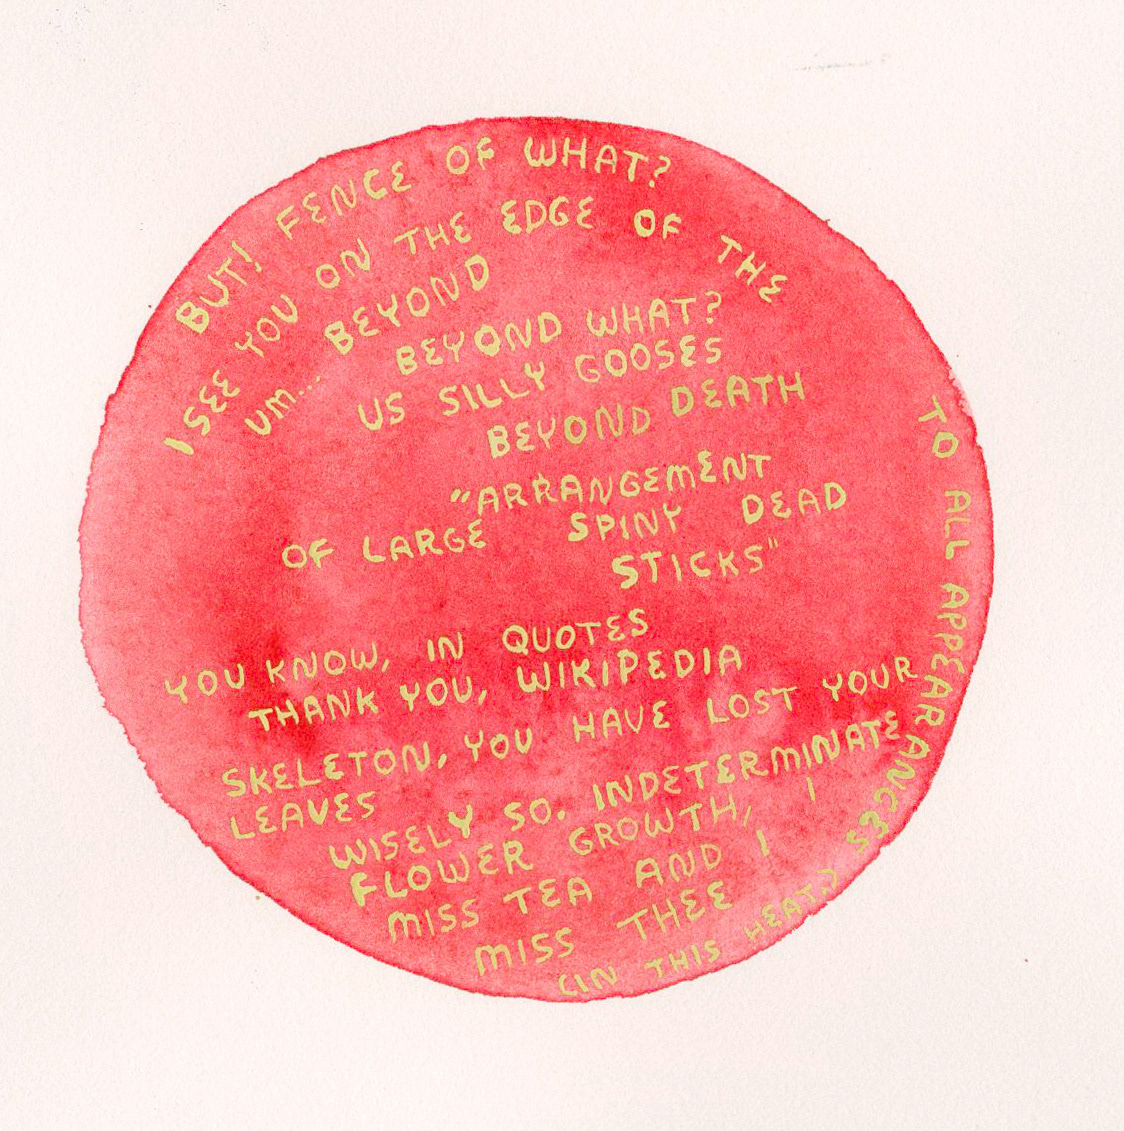 BUT! FENCE OF WHAT?
I SEE YOU ON THE EDGE OF THE
UM... BEYOND
BEYOND WHAT?
US SILLY GOOSES
BEYOND DEATH
"ARRANGEMENT
OF LARGE SPINY DEAD
STICKS"
YOU KNOW, IN QUOTES
THANK YOU, WIKIPEDIA
SKELETON, YOU HAVE LOST YOUR
LEAVES
WISELY SO. INDETERMINATE
FLOWER GROWTH, I
MISS TEA AND I
MISS THEE
(IN THIS HEAT)
TO ALL APPEARANCES